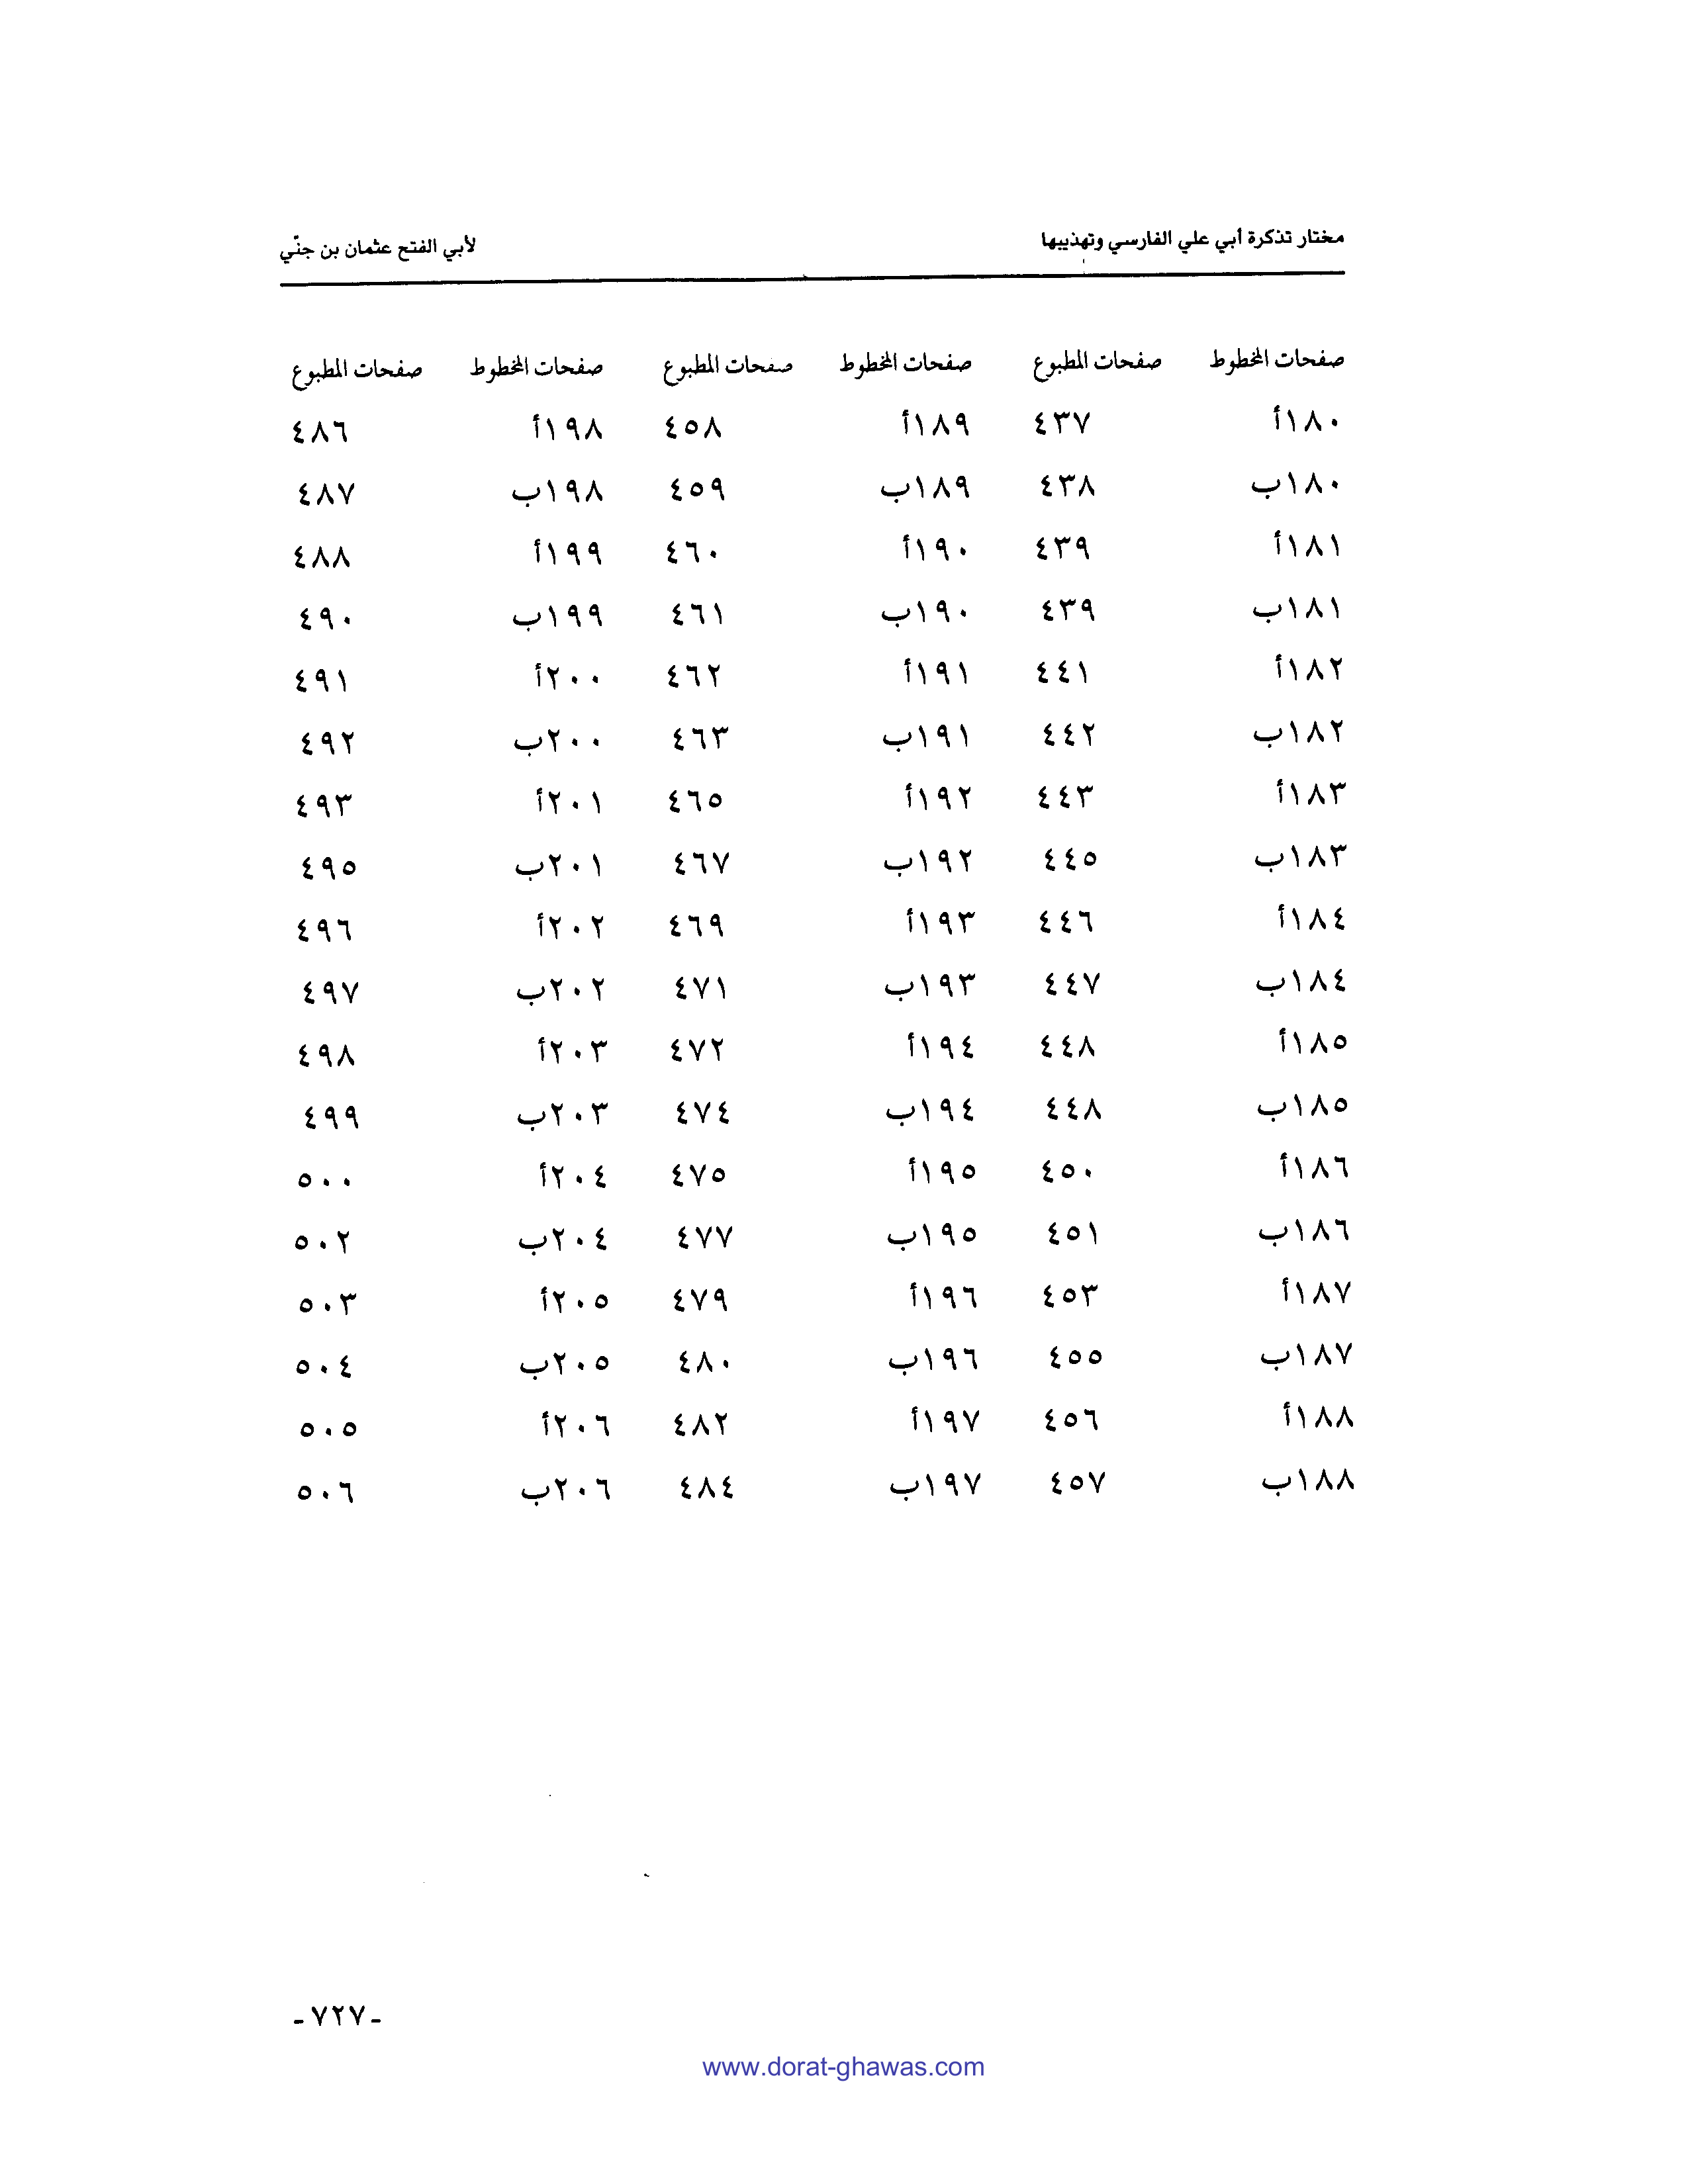 مختار تذكرة أبي علي الفارسي وتهذيبها لأبي الفتح عثمان بن جنّي
صفحات المخطوط صفحات المطبوع صفحات المخطوط صفحات المطبوع صفحات المخطوط صفحات المطبوع
١٨٠أ ٤٣٧ ١٨٩أ ٤٥٨ ١٩٨أ ٤٨٦
١٨٠ب ٤٣٨ ١٨٩ب ٤٥٩ ١٩٨ب ٤٨٧
١٨١أ ٤٣٩ ١٩٠أ ٤٦٠ ١٩٩أ ٤٨٨
١٨١ب ٤٣٩ ١٩٠ب ٤٦١ ١٩٩ب ٤٩٠
١٨٢أ ٤٤١ ١٩١أ ٤٦٢ ٢٠٠أ ٤٩١
١٨٢ب ٤٤٢ ١٩١ب ٤٦٣ ٢٠٠ب ٤٩٢
١٨٣أ ٤٤٣ ١٩٢أ ٤٦٥ ٢٠١أ ٤٩٣
١٨٣ب ٤٤٥ ١٩٢ب ٤٦٧ ٢٠١ب ٤٩٥
١٨٤أ ٤٤٦ ١٩٣أ ٤٦٩ ٢٠٢أ ٤٩٦
١٨٤ب ٤٤٧ ١٩٣ب ٤٧١ ٢٠٢ب ٤٩٧
١٨٥أ ٤٤٨ ١٩٤أ ٤٧٢ ٢٠٣أ ٤٩٨
١٨٥ب ٤٤٨ ١٩٤ب ٤٧٤ ٢٠٣ب ٤٩٩
١٨٦أ ٤٥٠ ١٩٥أ ٤٧٥ ٢٠٤أ ٥٠٠
١٨٦ب ٤٥١ ١٩٥ب ٤٧٧ ٢٠٤ب ٥٠٢
١٨٧أ ٤٥٣ ١٩٦أ ٤٧٩ ٢٠٥أ ٥٠٣
١٨٧ب ٤٥٥ ١٩٦ب ٤٨٠ ٢٠٥ب ٥٠٤
١٨٨أ ٤٥٦ ١٩٧أ ٤٨٢ ٢٠٦أ ٥٠٥
١٨٨ب ٤٥٧ ١٩٧ب ٤٨٤ ٢٠٦ب ٥٠٦
-٧٢٧-
www.dorat-ghawas.com